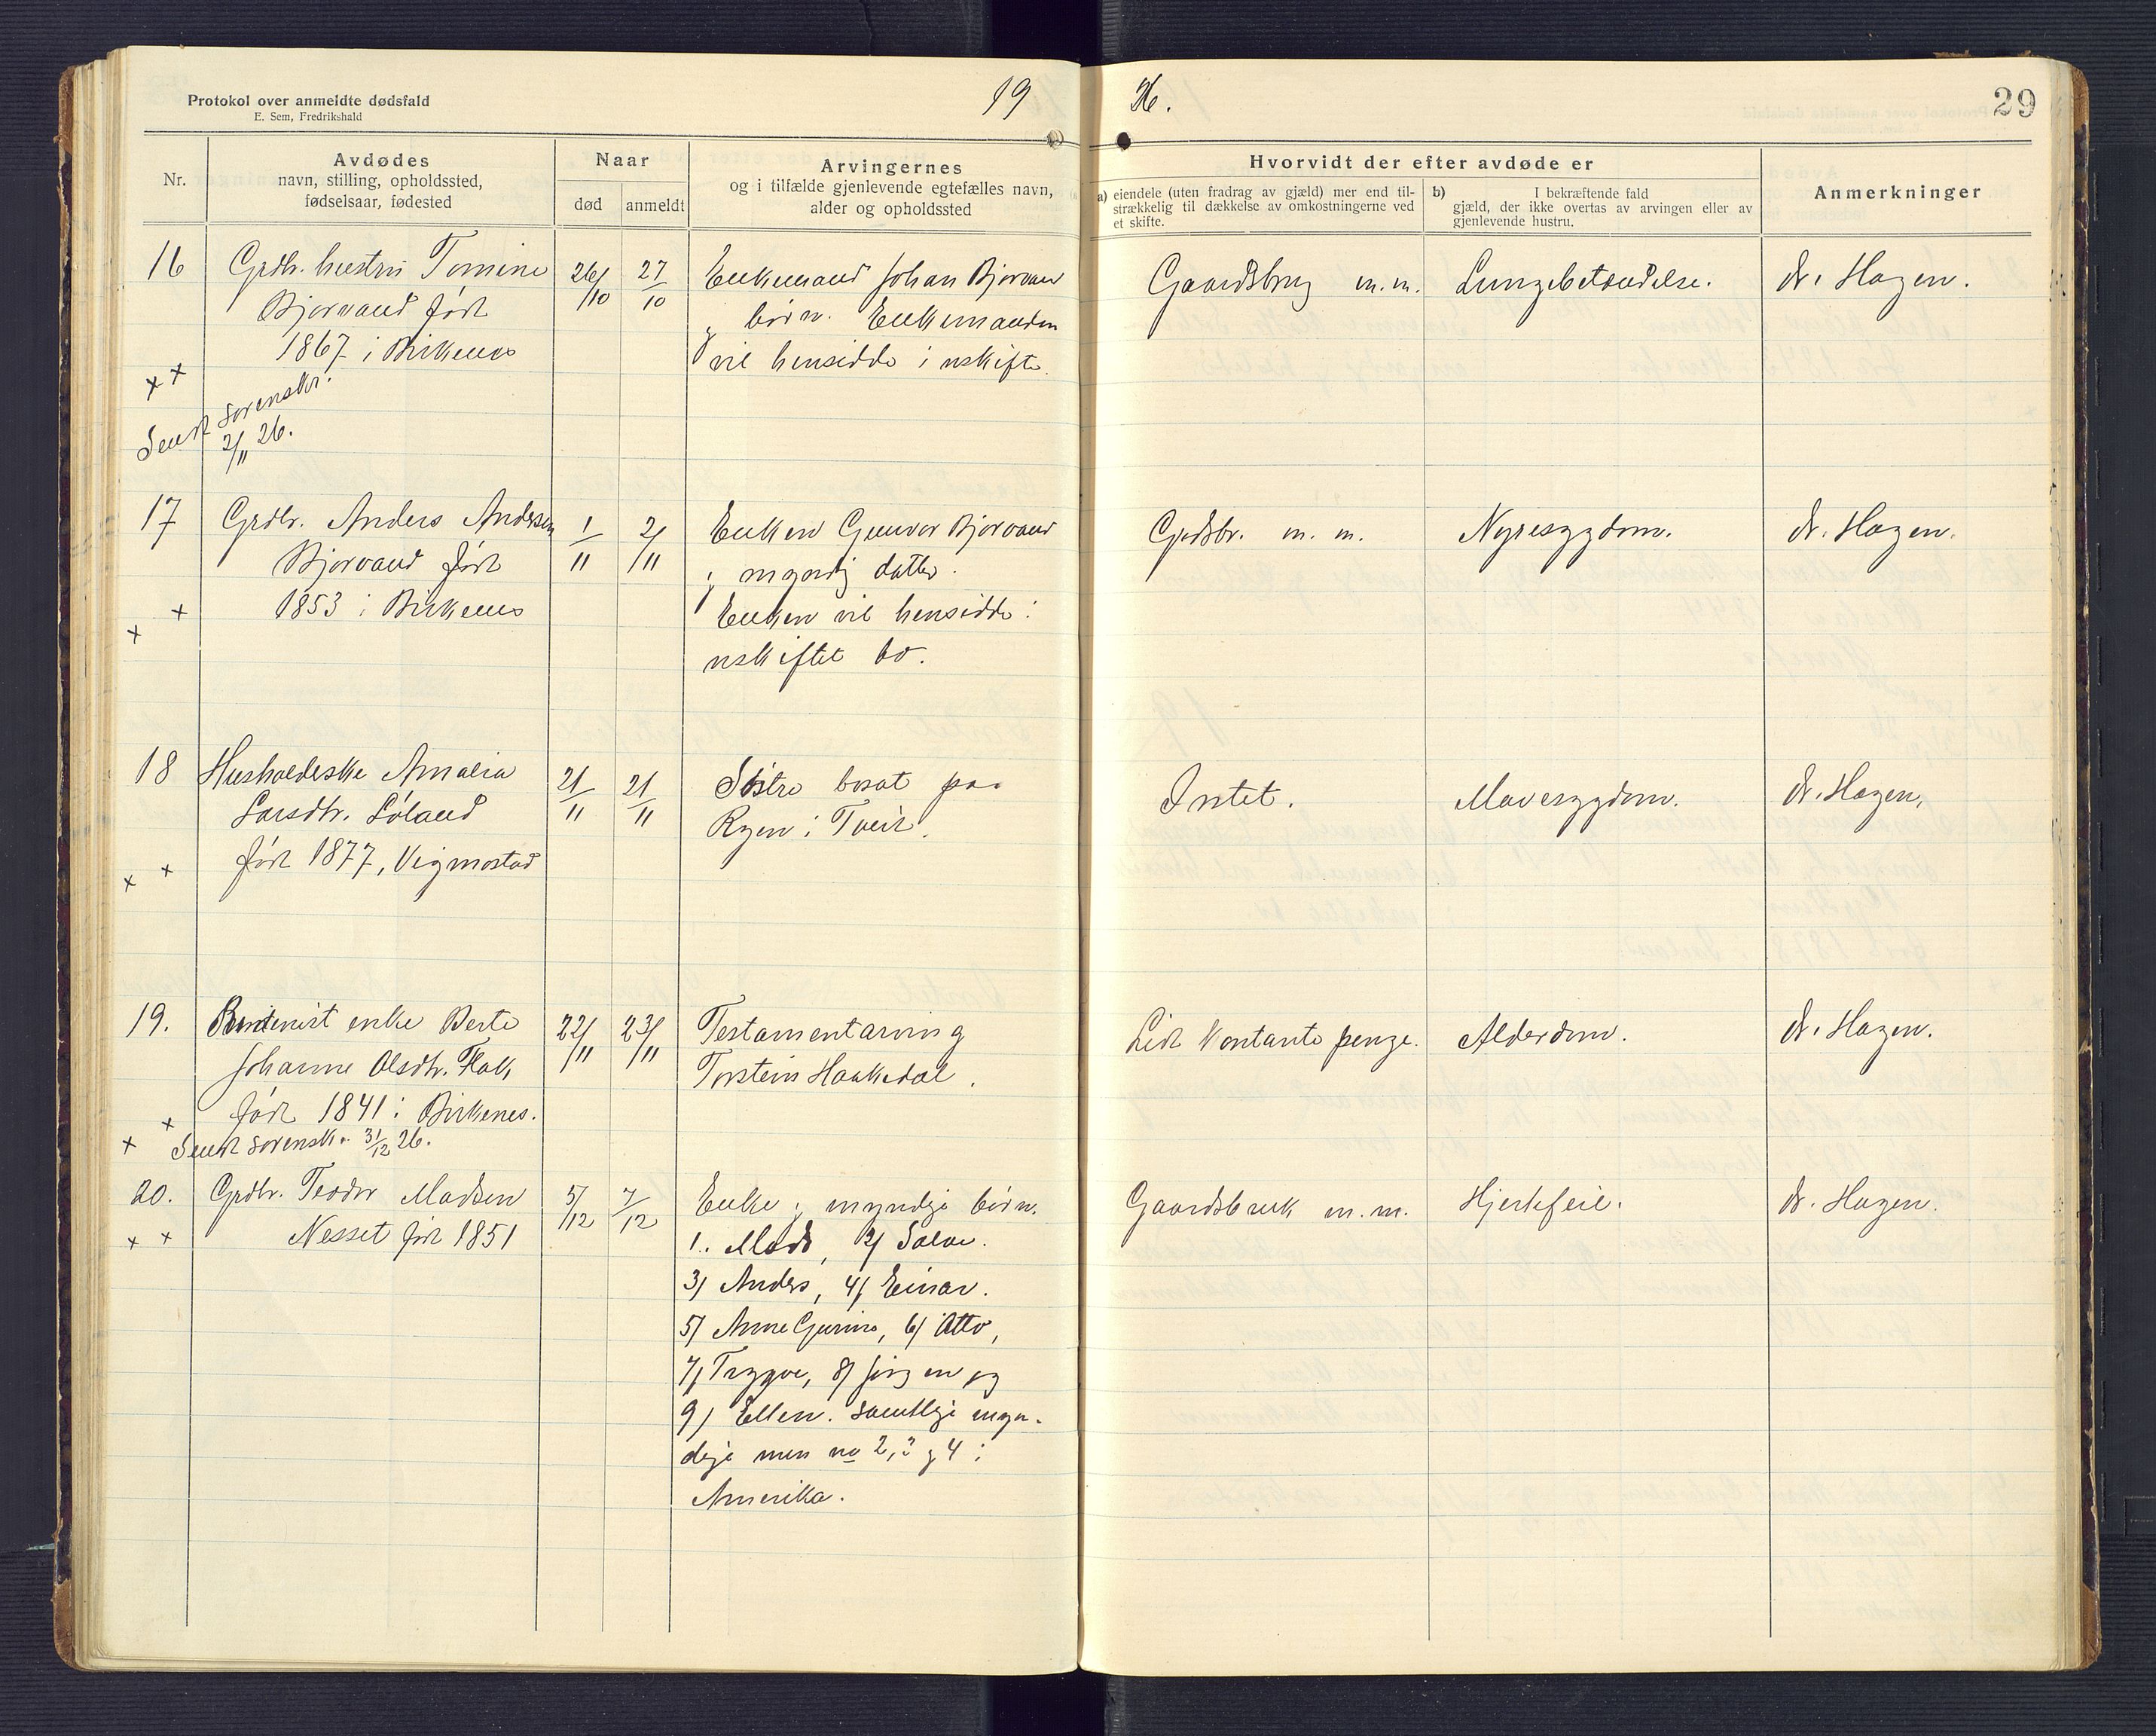 Protokol over anmeldte dødsfald
E. Sem, Fredrikshald
19
26.
29
Nr.
Avdødes
navn, stilling, opholdssted,
fødselsaar, fødested
Naar
død
anmeldt
Arvingernes
og i tilfælde gjenlevende egtefælles navn,
alder og opholdssted
Hvorvidt der efter avdøde er
a) eiendele (uten fradrag av gjæld) mer end til-
strækkelig til dækkelse av omkostningerne ved
et skifte.
b) I bekræftende fald
gjæld, der ikke overtas av arvingen eller av
gjenlevende hustru.
Anmerkninger
16
Grdbr. hustru Tomine
Bjorvand født
1867 i Birkenes
x x
Sendt sorenskr.
2/11 26.
26/10
27/10
Enkemand Johan Bjorvand
og børn. Enkemanden
vil hensidde i uskifte.
Gaardsbrug m.m.
Lungebetændelse.
dr. Hagen.
17
Grdbr. Anders Andersen
Bjorvand født
1853 i Birkenes
x x
1/11
2/11
Enken Gunvor Bjorvand
og myndig datter.
Enken vil hensidde i
uskiftet bo.
Grdsbr. m. m.
Nyresygdom.
dr. Hagen.
18
Husholderske Amalia
Larsdtr. Løland
født 1877, Vigmostad
x x
21/11
21/11
Søstre bosat paa
Ryen i Tveit.
Intet.
Mavesygdom.
dr. Hagen.
19.
enke Berte
Johanne Olsdtr. Flak
født 1841 i Birkenes.
x x
Sendt sorenskr. 31/12 26.
22/11
23/11
Testamentarving
Torstein Haakedal.
Lidt kontante penge.
Alderdom.
dr. Hagen.
20.
Grdbr. Teodor Madsen
Nesset født 1851
x x
5/12
7/12
Enke og myndige børn.
1. Mads, 2/ Salve.
3/ Anders, 4/ Einar.
5/ Anne Gurine, 6/ Otto,
7/ Trygve, 8/ Jørgen og
9/ Ellen. samtlige myn-
dige men no 2, 3 og 4 i
Amerika.
Gaardsbruk m.m.
Hjertefeil.
dr. Hagen.